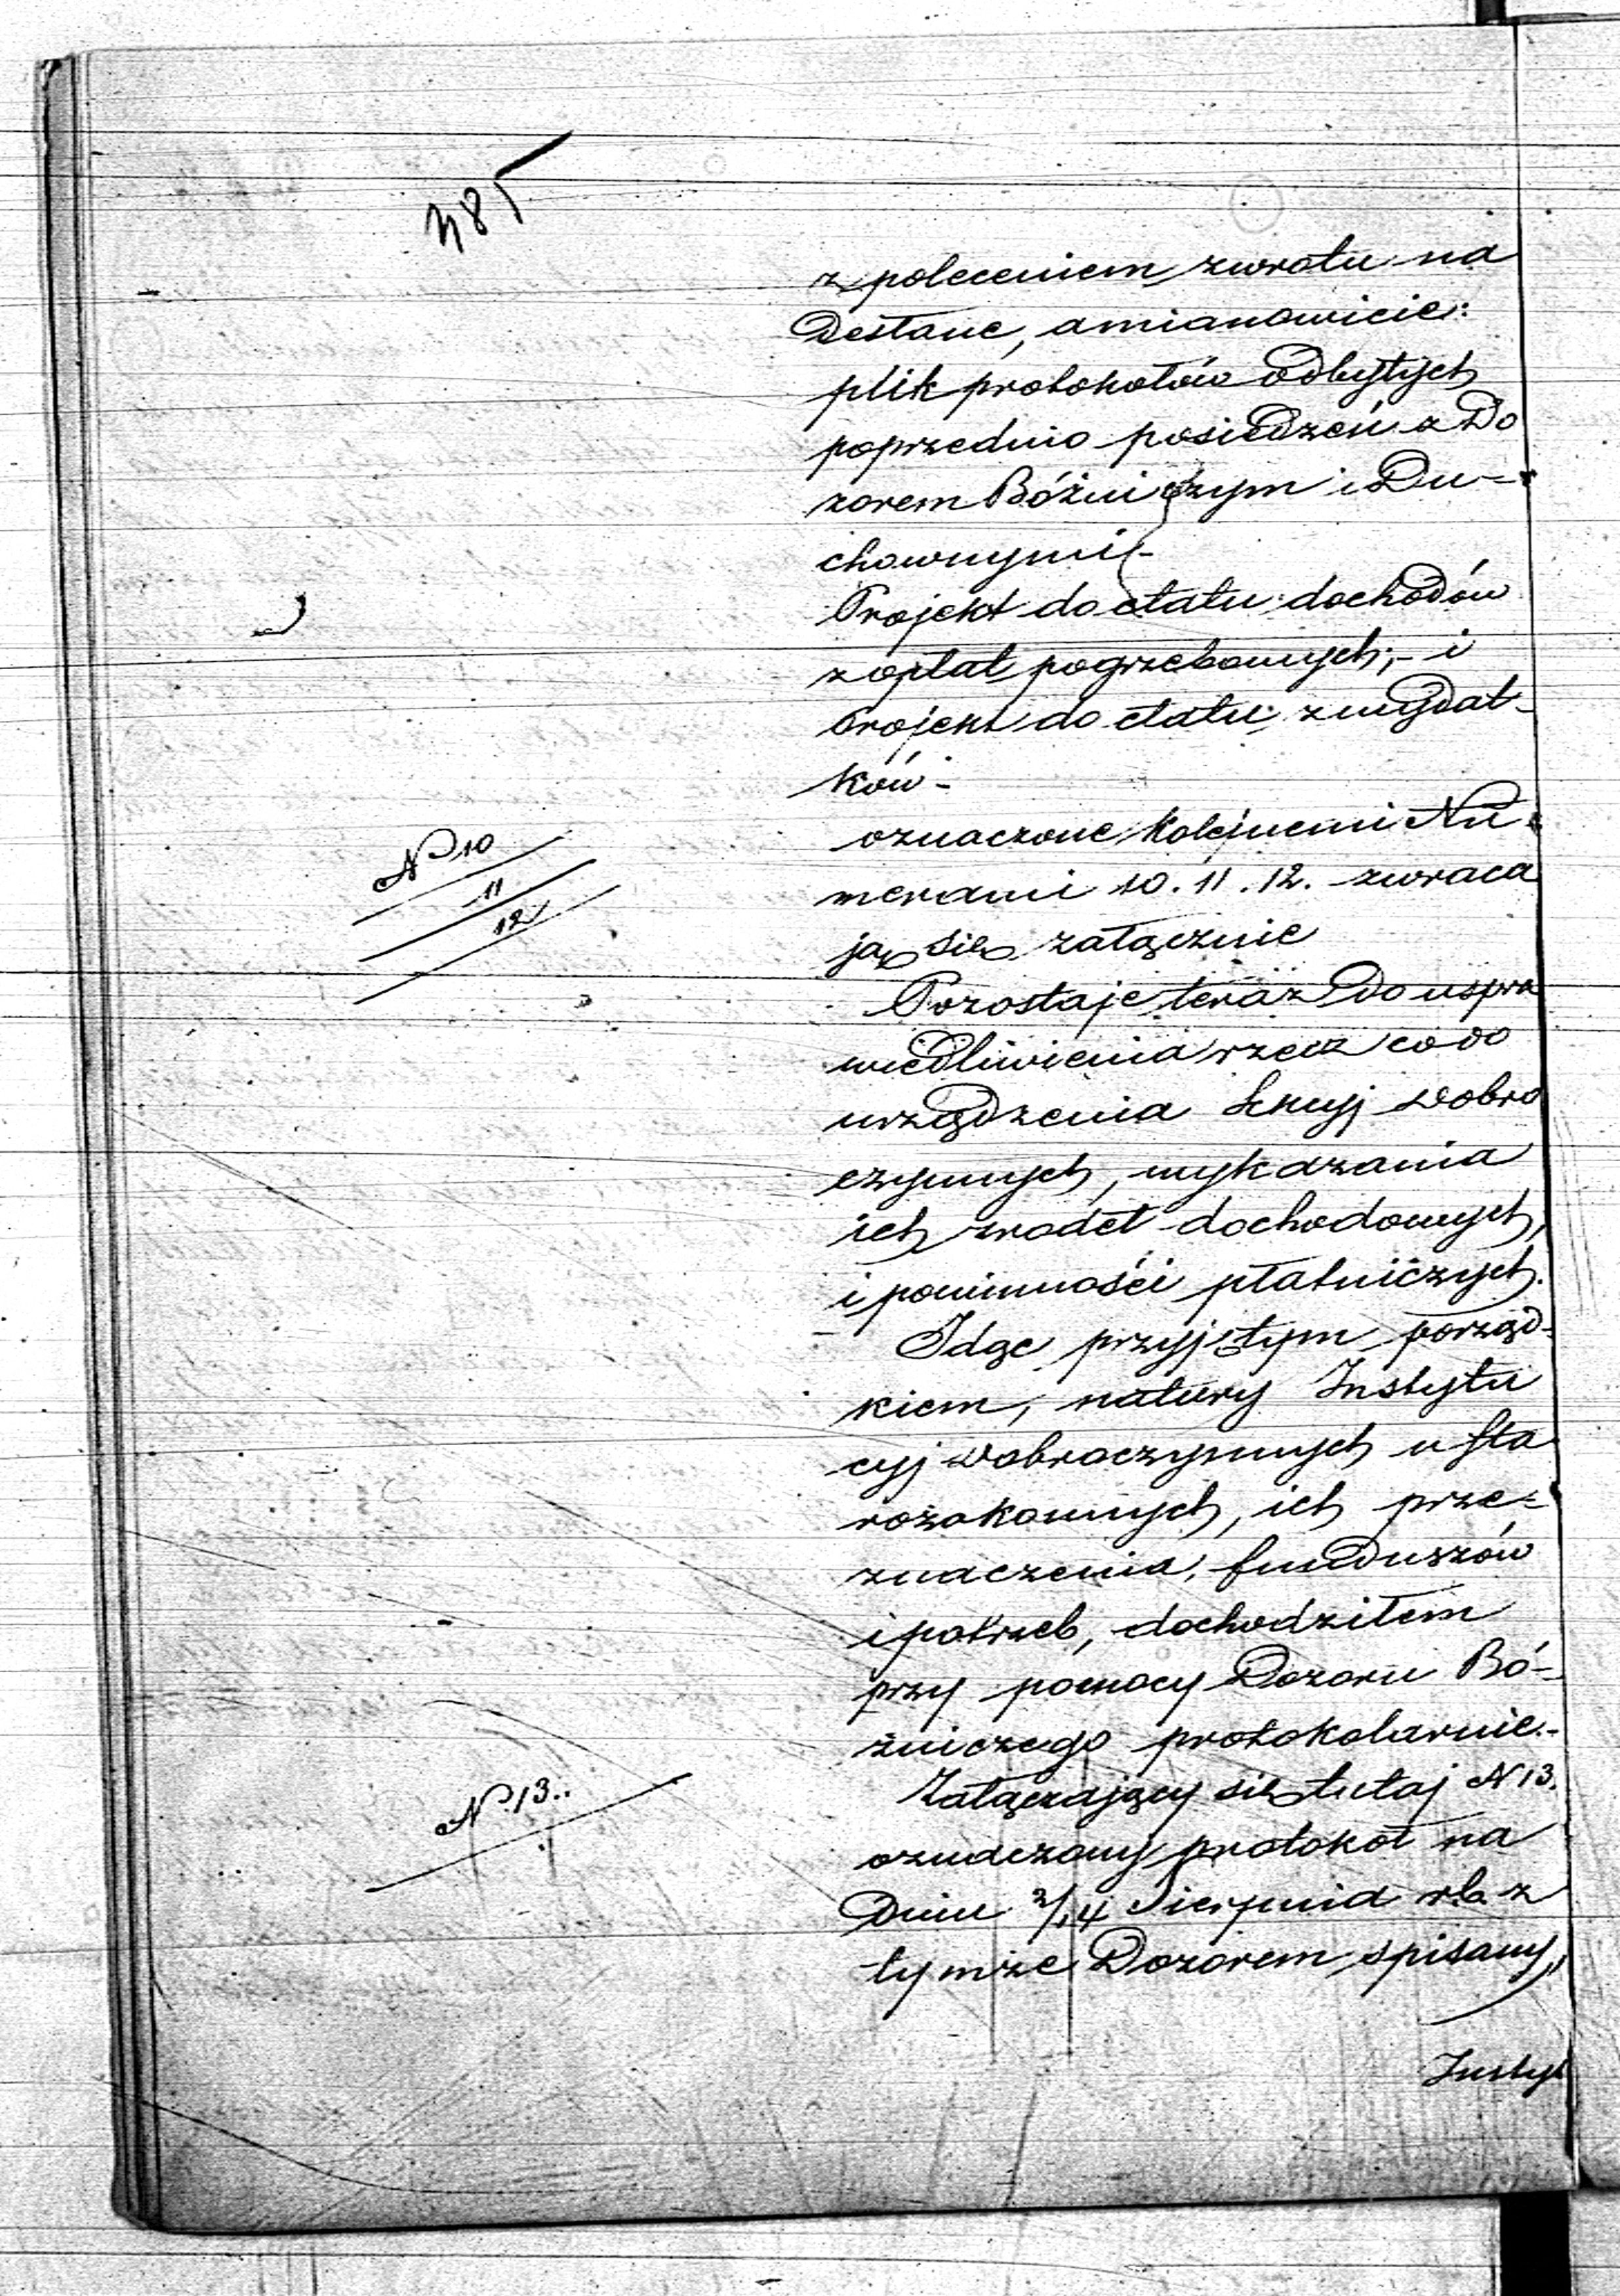 385
z poleceniem zwrotu na
Destane, amianowicie:
plik protokołów odbytych
poprzednio posiedzeń z Do
zorem Bóźniczym i Du-
chownymi-
Projekt do etatu dochodów
z opłat pogrzebowych;- i
Projekt do etatu z wydat-
ków-
N° 10
11
12
oznaczone kolejnemi Nu-
merami 10. 11. 12. zwraca
ją się załącznie
Pozostaje teraz do uspra
wiedliwienia rzecz co do
urządzenia dobro
czynnych, wykazania
ich zrodeł dochodowych,
i powinności płatniczych.
Idąc przyjętym porząd-
kiem, natury Instytu
cyj dobroczynnych u sta
rozakonnych, ich prze-
znaczenia, funduszów
i potrzeb, dochodziłem
przy pomocy Dozoru Bó-
żniczego protokolarnie.-
N° 13..
Załączający się tutaj N 13.
oznaczony protokoł na
Dniu 2/14 Sierpnia rb. z
tymże Dozorem spisany,
Instyt